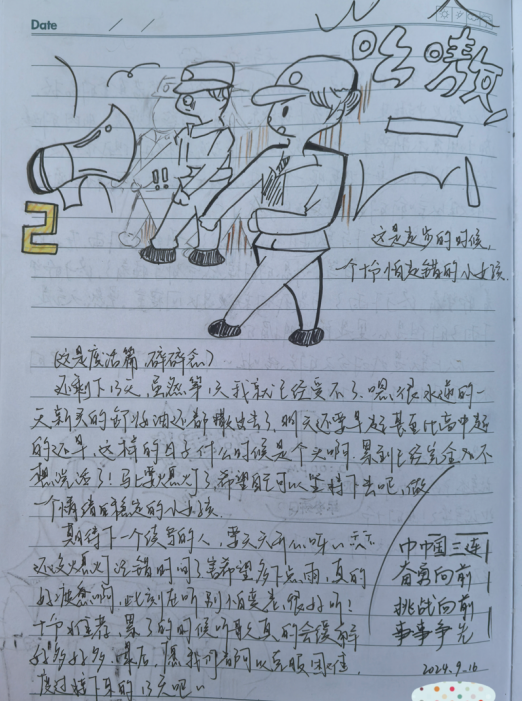 Date
2
!!
这是走步的时候,
一个怕走错的小女孩.
(这是废话篇 碎碎念)
还剩下13天, 虽然第1天我就已经受不了. 嗯, 很水逆的一
天, 新买的卸妆油还都撒出去了, 明天还要早起, 甚至比高中起
的还早, 这样的日子什么时候是个头啊. 累到已经完全不
想说话了! 马上要熄灯了, 希望自己可以坚持下去吧, 做
一个情绪稳定的小女孩.
期待下一个续写的人, 要天天开心呀
还没熄灯 记错时间了 害 希望多下点雨, 真的
好疲惫啊, 此刻在听别怕变老, 很好听!
累了的时候听歌真的会缓解
好多好多. 最后, 愿我们都可以克服困难,
度过接下来的13天吧
中国三连
奋勇向前
挑战向前
事事争先
2024.9.16